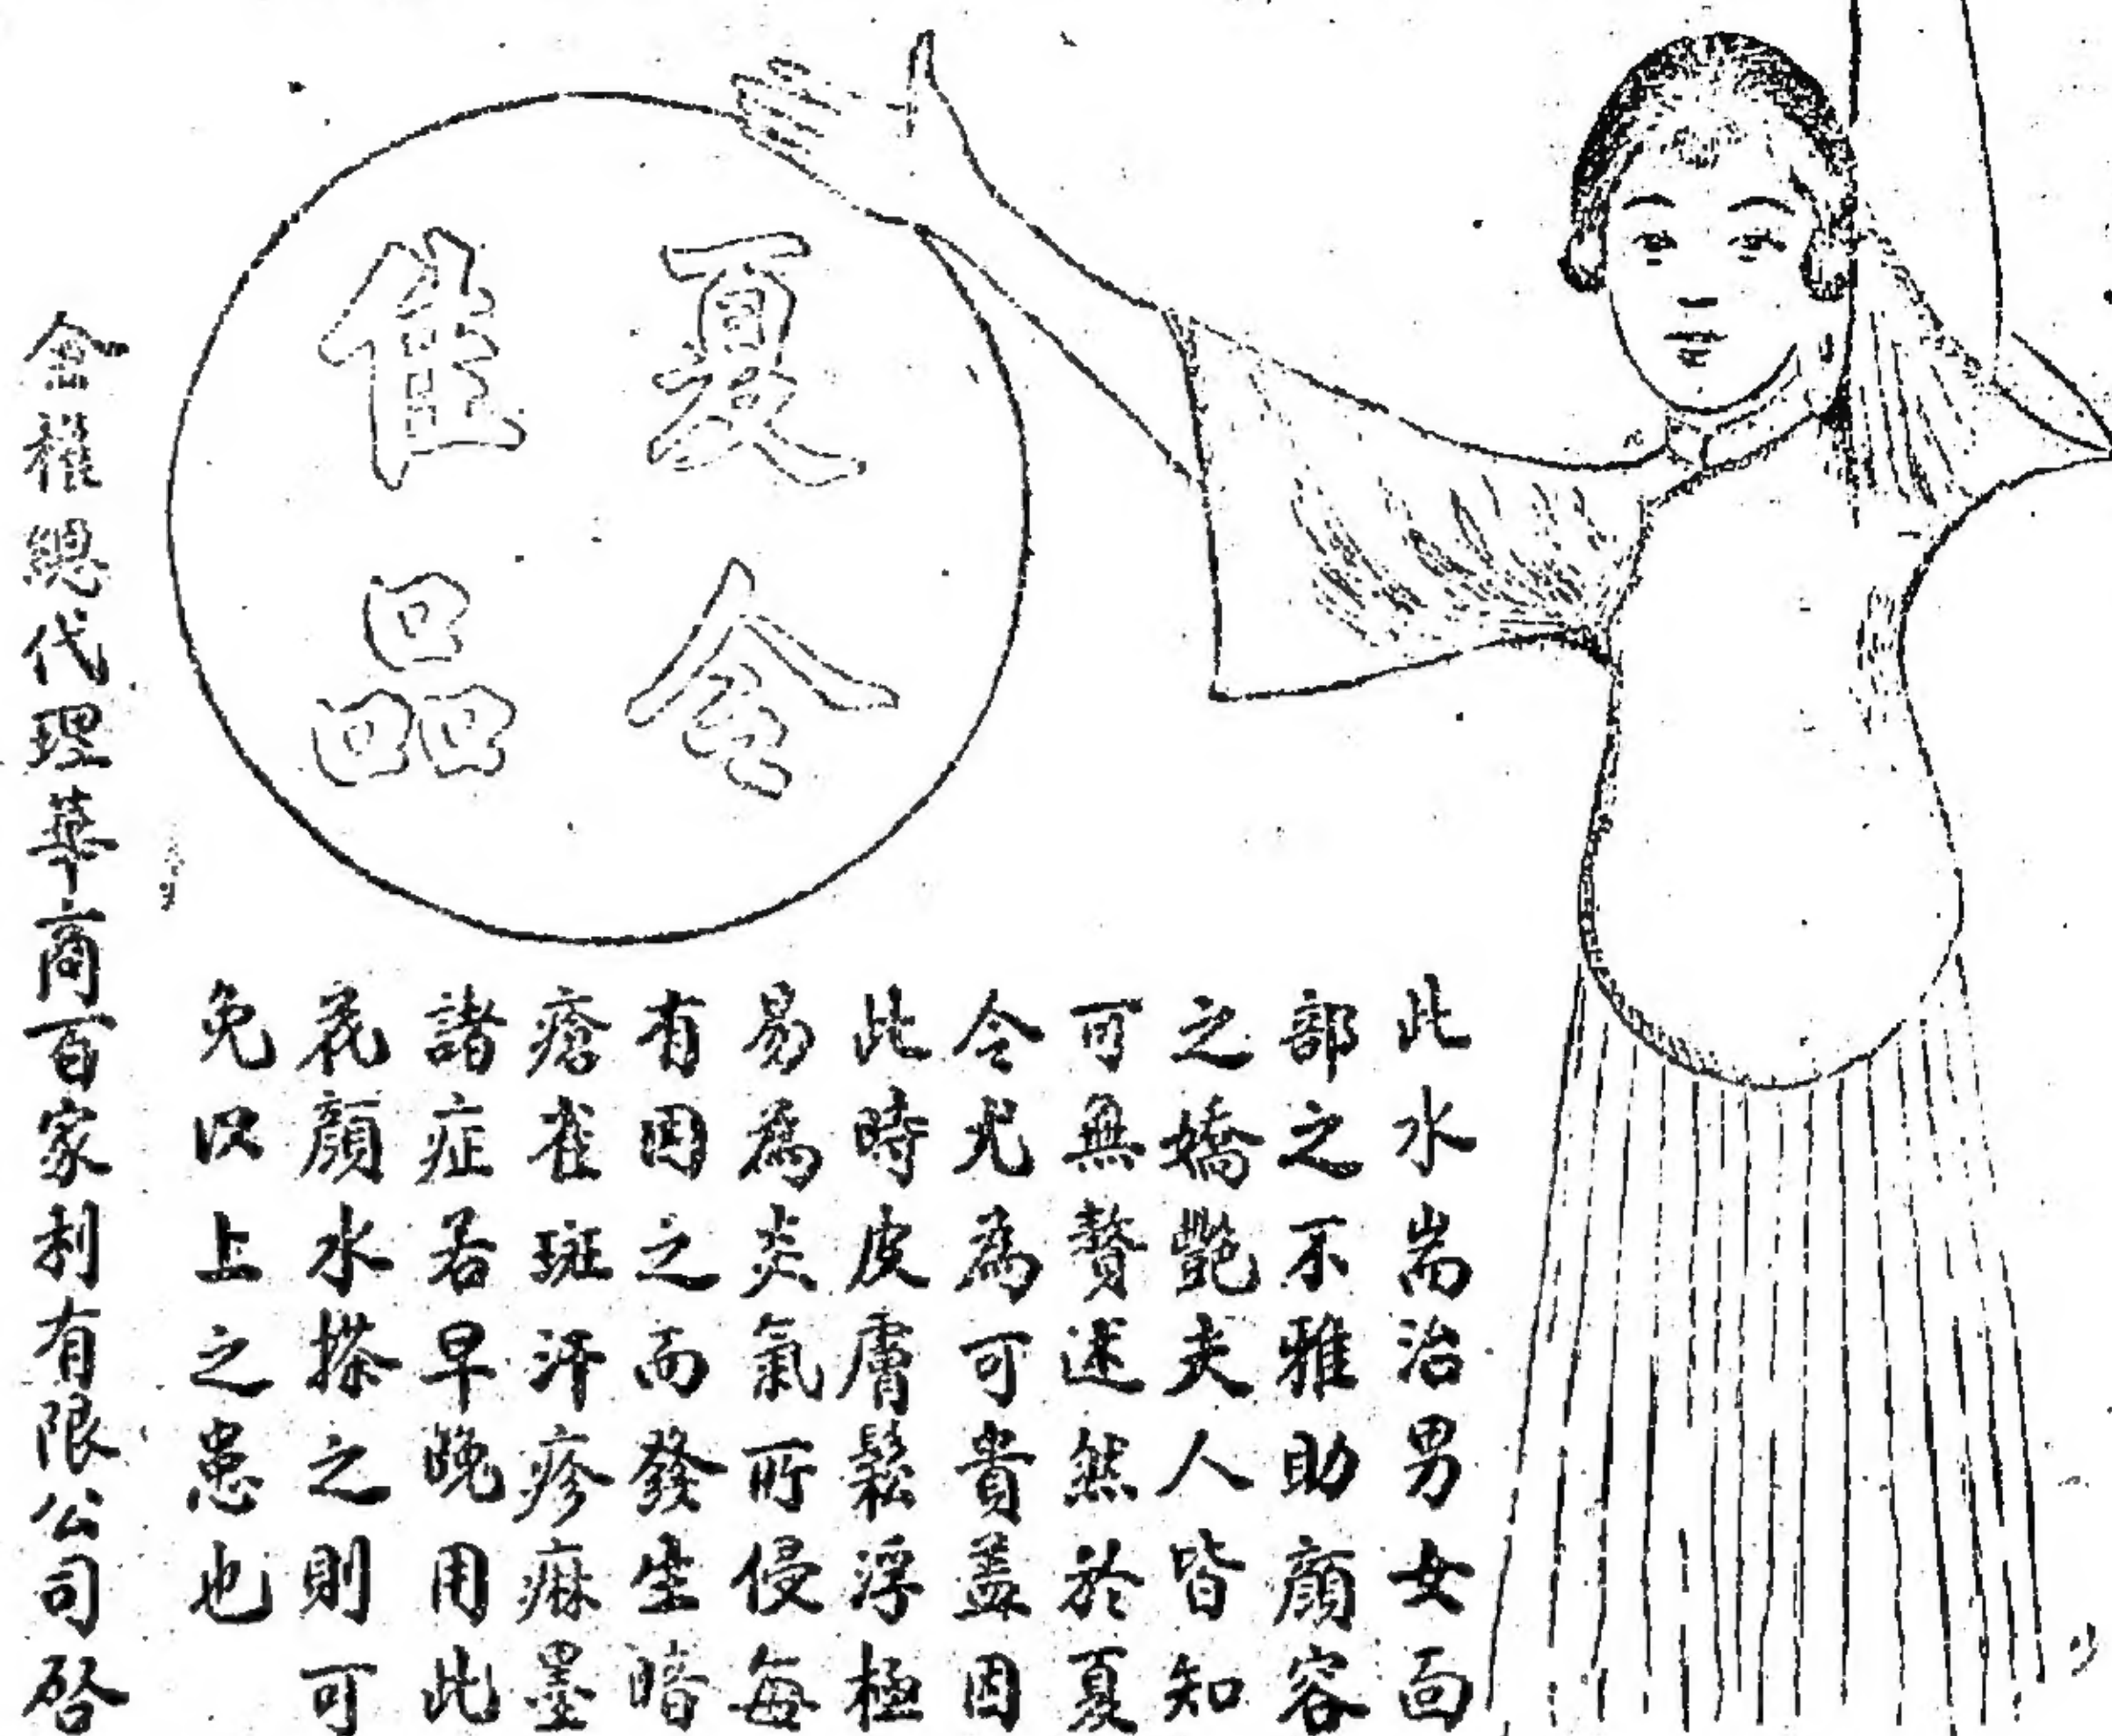 夏令
佳品
此水耑治男女面
部之不雅助顏容
之嬌艷夫人皆知
可無贅述然於夏
令尤為可貴蓋因
此時皮膚鬆浮極
易為炎氣所侵每
有因之而發生暗
瘡雀斑汗疹痲墨
諸症若早晚用此
花顏水搽之則可
免以上之患也
總代理華商百家利有限公司啓